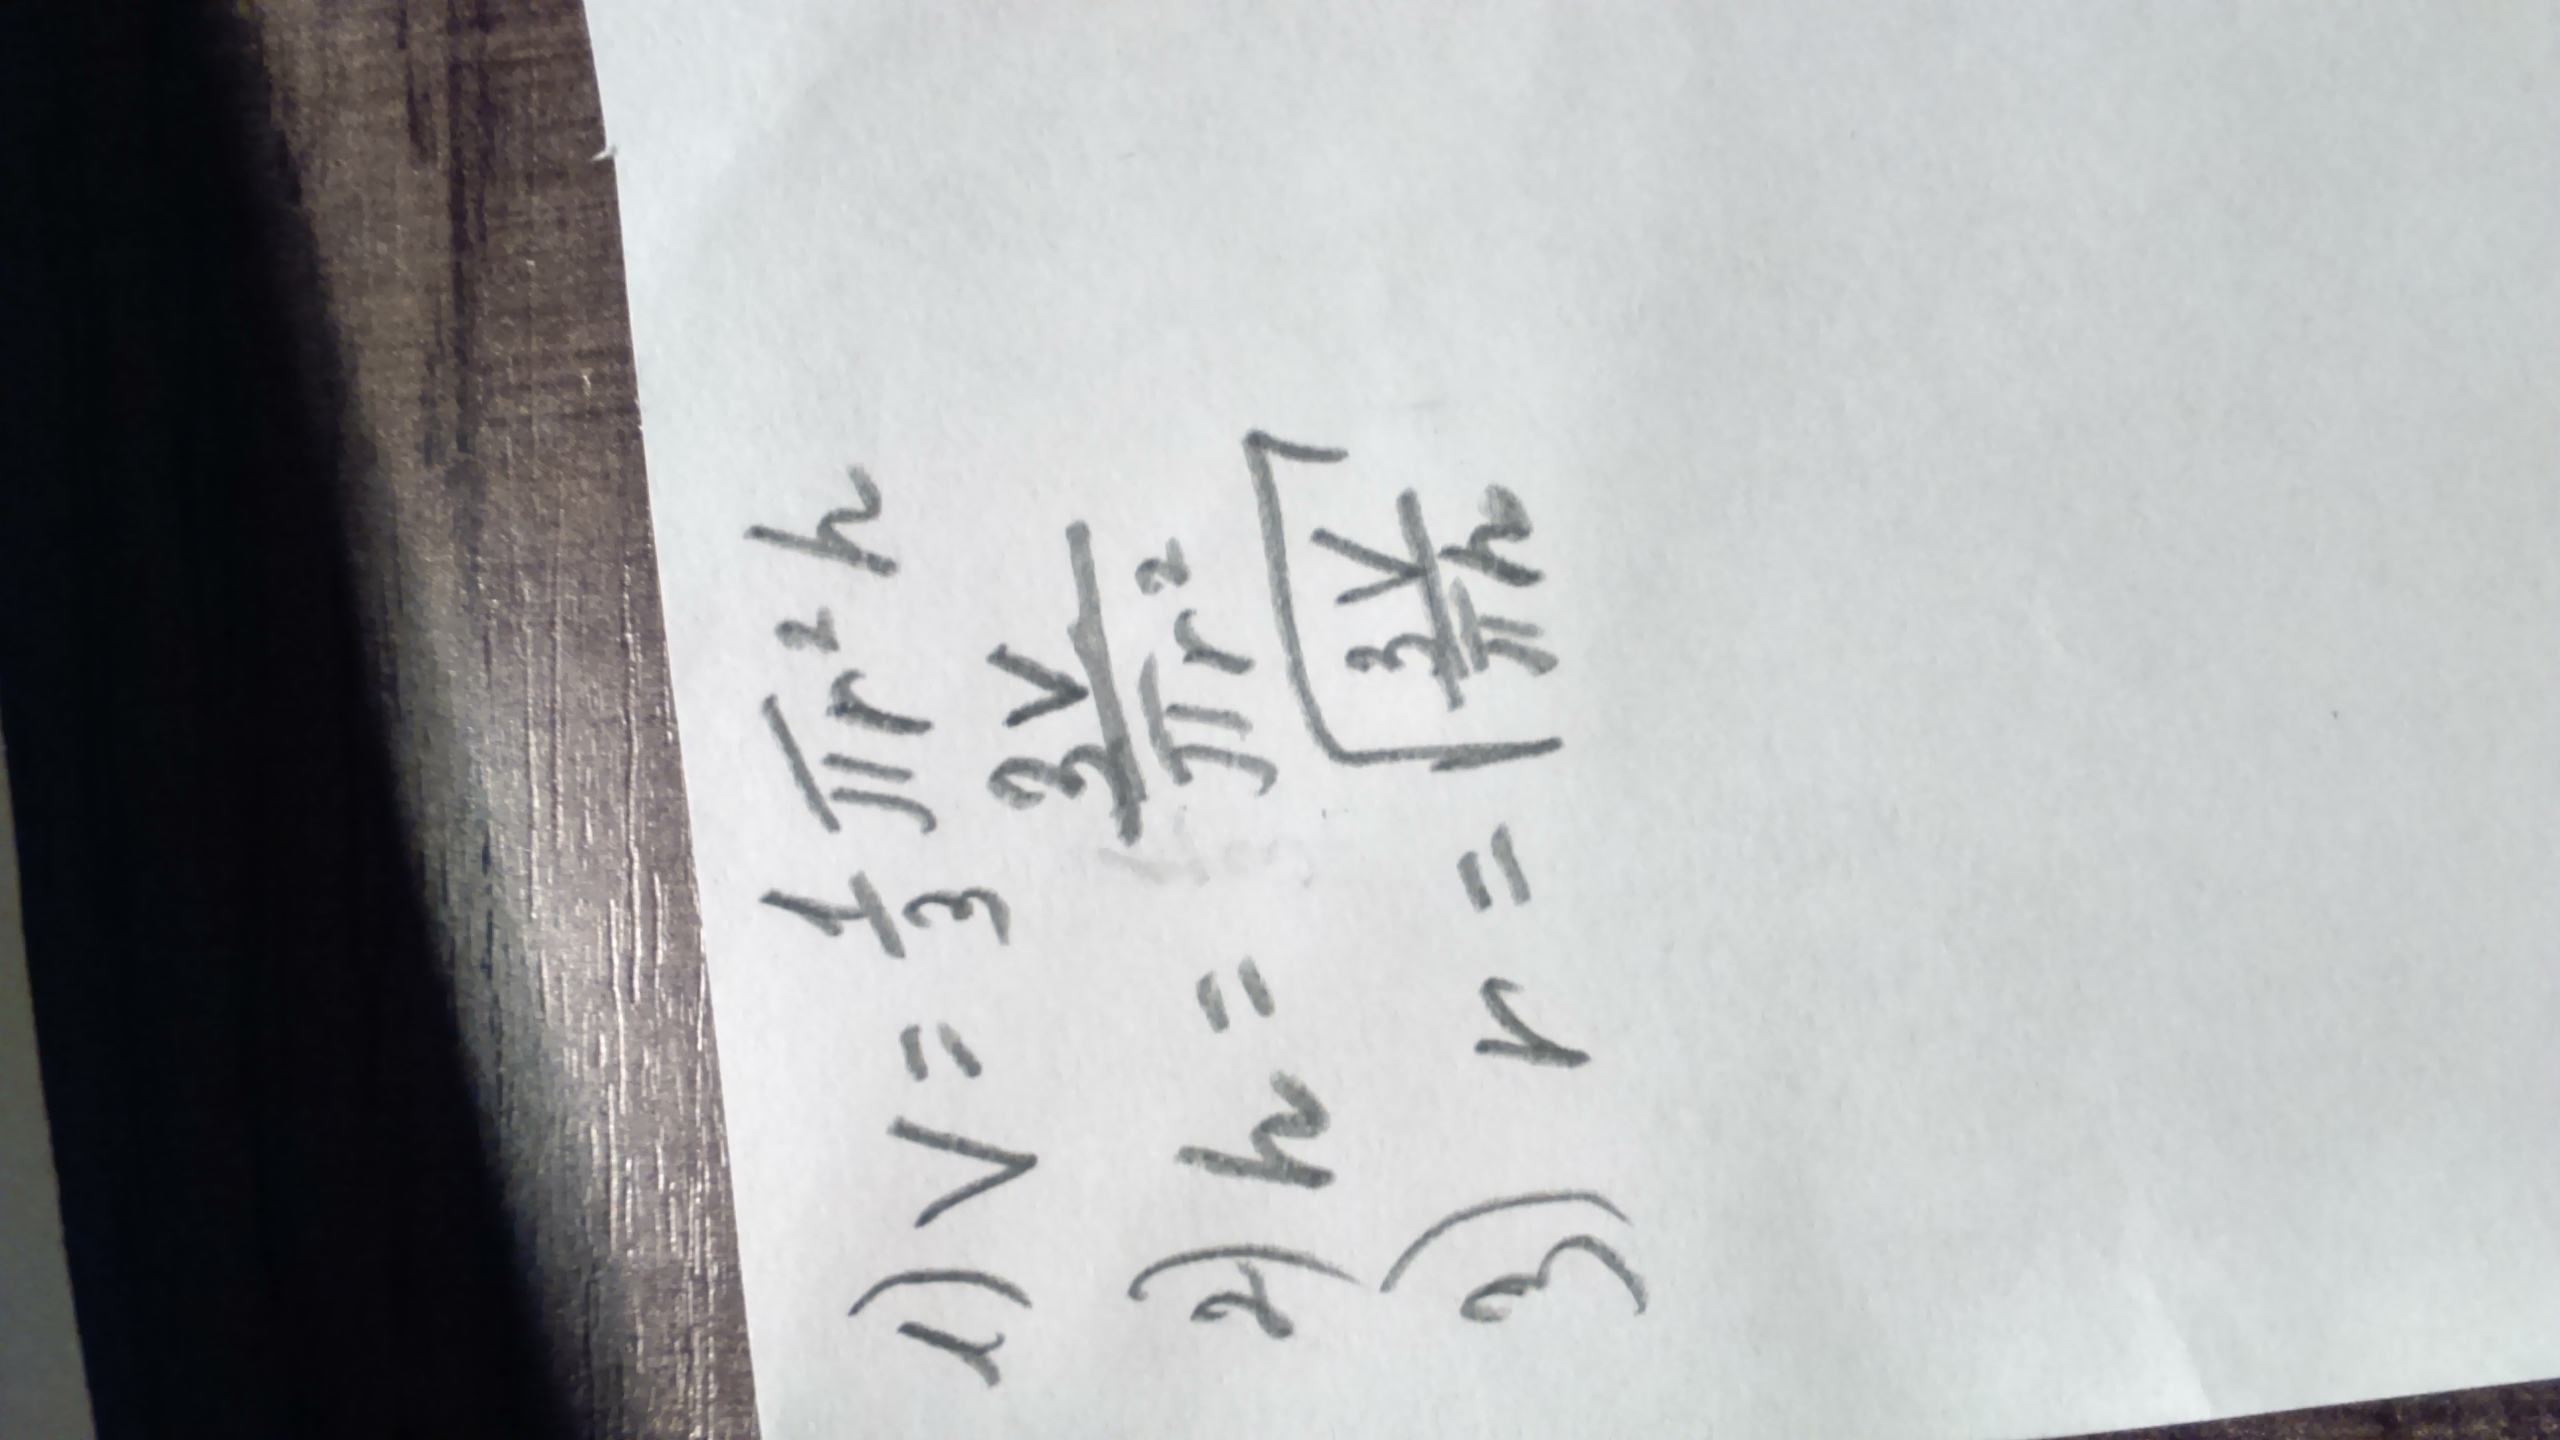 1) V = 1/3 πr²h
2) h = 3V/πr²
3) r = √(3V/πh)